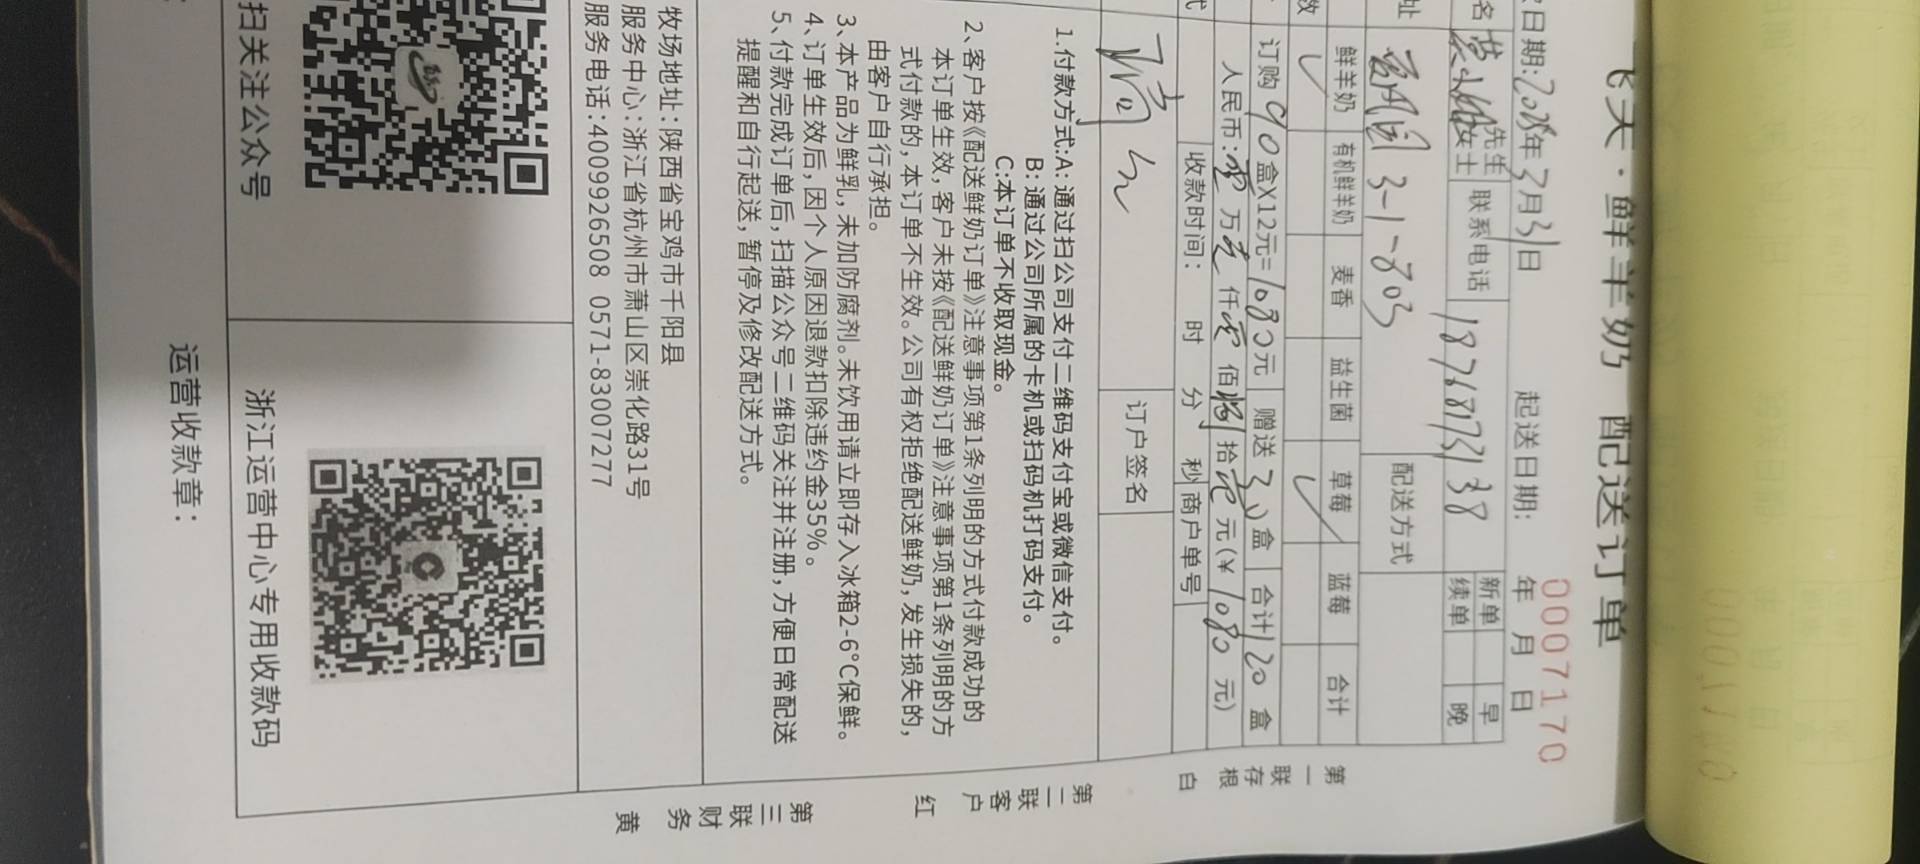 飞天·鲜羊奶 配送订单
0007170
日期:2025年3月31日 起送日期: 年 月 日
名 先生 女士 联系电话 18768173138 新单 续单 早 晚
址 3-1-803 配送方式
鲜羊奶 有机鲜羊奶 麦香 益生菌 草莓 蓝莓 合计
数 ✓ ✓
订购90盒X12元=1080元 赠送30盒 合计120盒
人民币:零万壹仟零佰捌拾零元(¥1080元)
收款时间: 时 分 秒 商户单号
订户签名
1.付款方式:A: 通过扫公司支付二维码支付宝或微信支付。
B: 通过公司所属的卡机或扫码机打码支付。
C:本订单不收取现金。
2、客户按《配送鲜奶订单》注意事项第1条列明的方式付款成功的
本订单生效,客户未按《配送鲜奶订单》注意事项第1条列明的方
式付款的,本订单不生效。公司有权拒绝配送鲜奶,发生损失的,
由客户自行承担。
3、本产品为鲜乳,未加防腐剂。未饮用请立即存入冰箱2-6°C保鲜。
4、订单生效后,因个人原因退款扣除违约金35%。
5、付款完成订单后,扫描公众号二维码关注并注册,方便日常配送
提醒和自行起送,暂停及修改配送方式。
牧场地址:陕西省宝鸡市千阳县
服务中心:浙江省杭州市萧山区崇化路31号
服务电话:4009926508 0571-83007277
扫关注公众号 浙江运营中心专用收款码
运营收款章:
第一联存根 白
第二联客户 红
第三联财务 黄